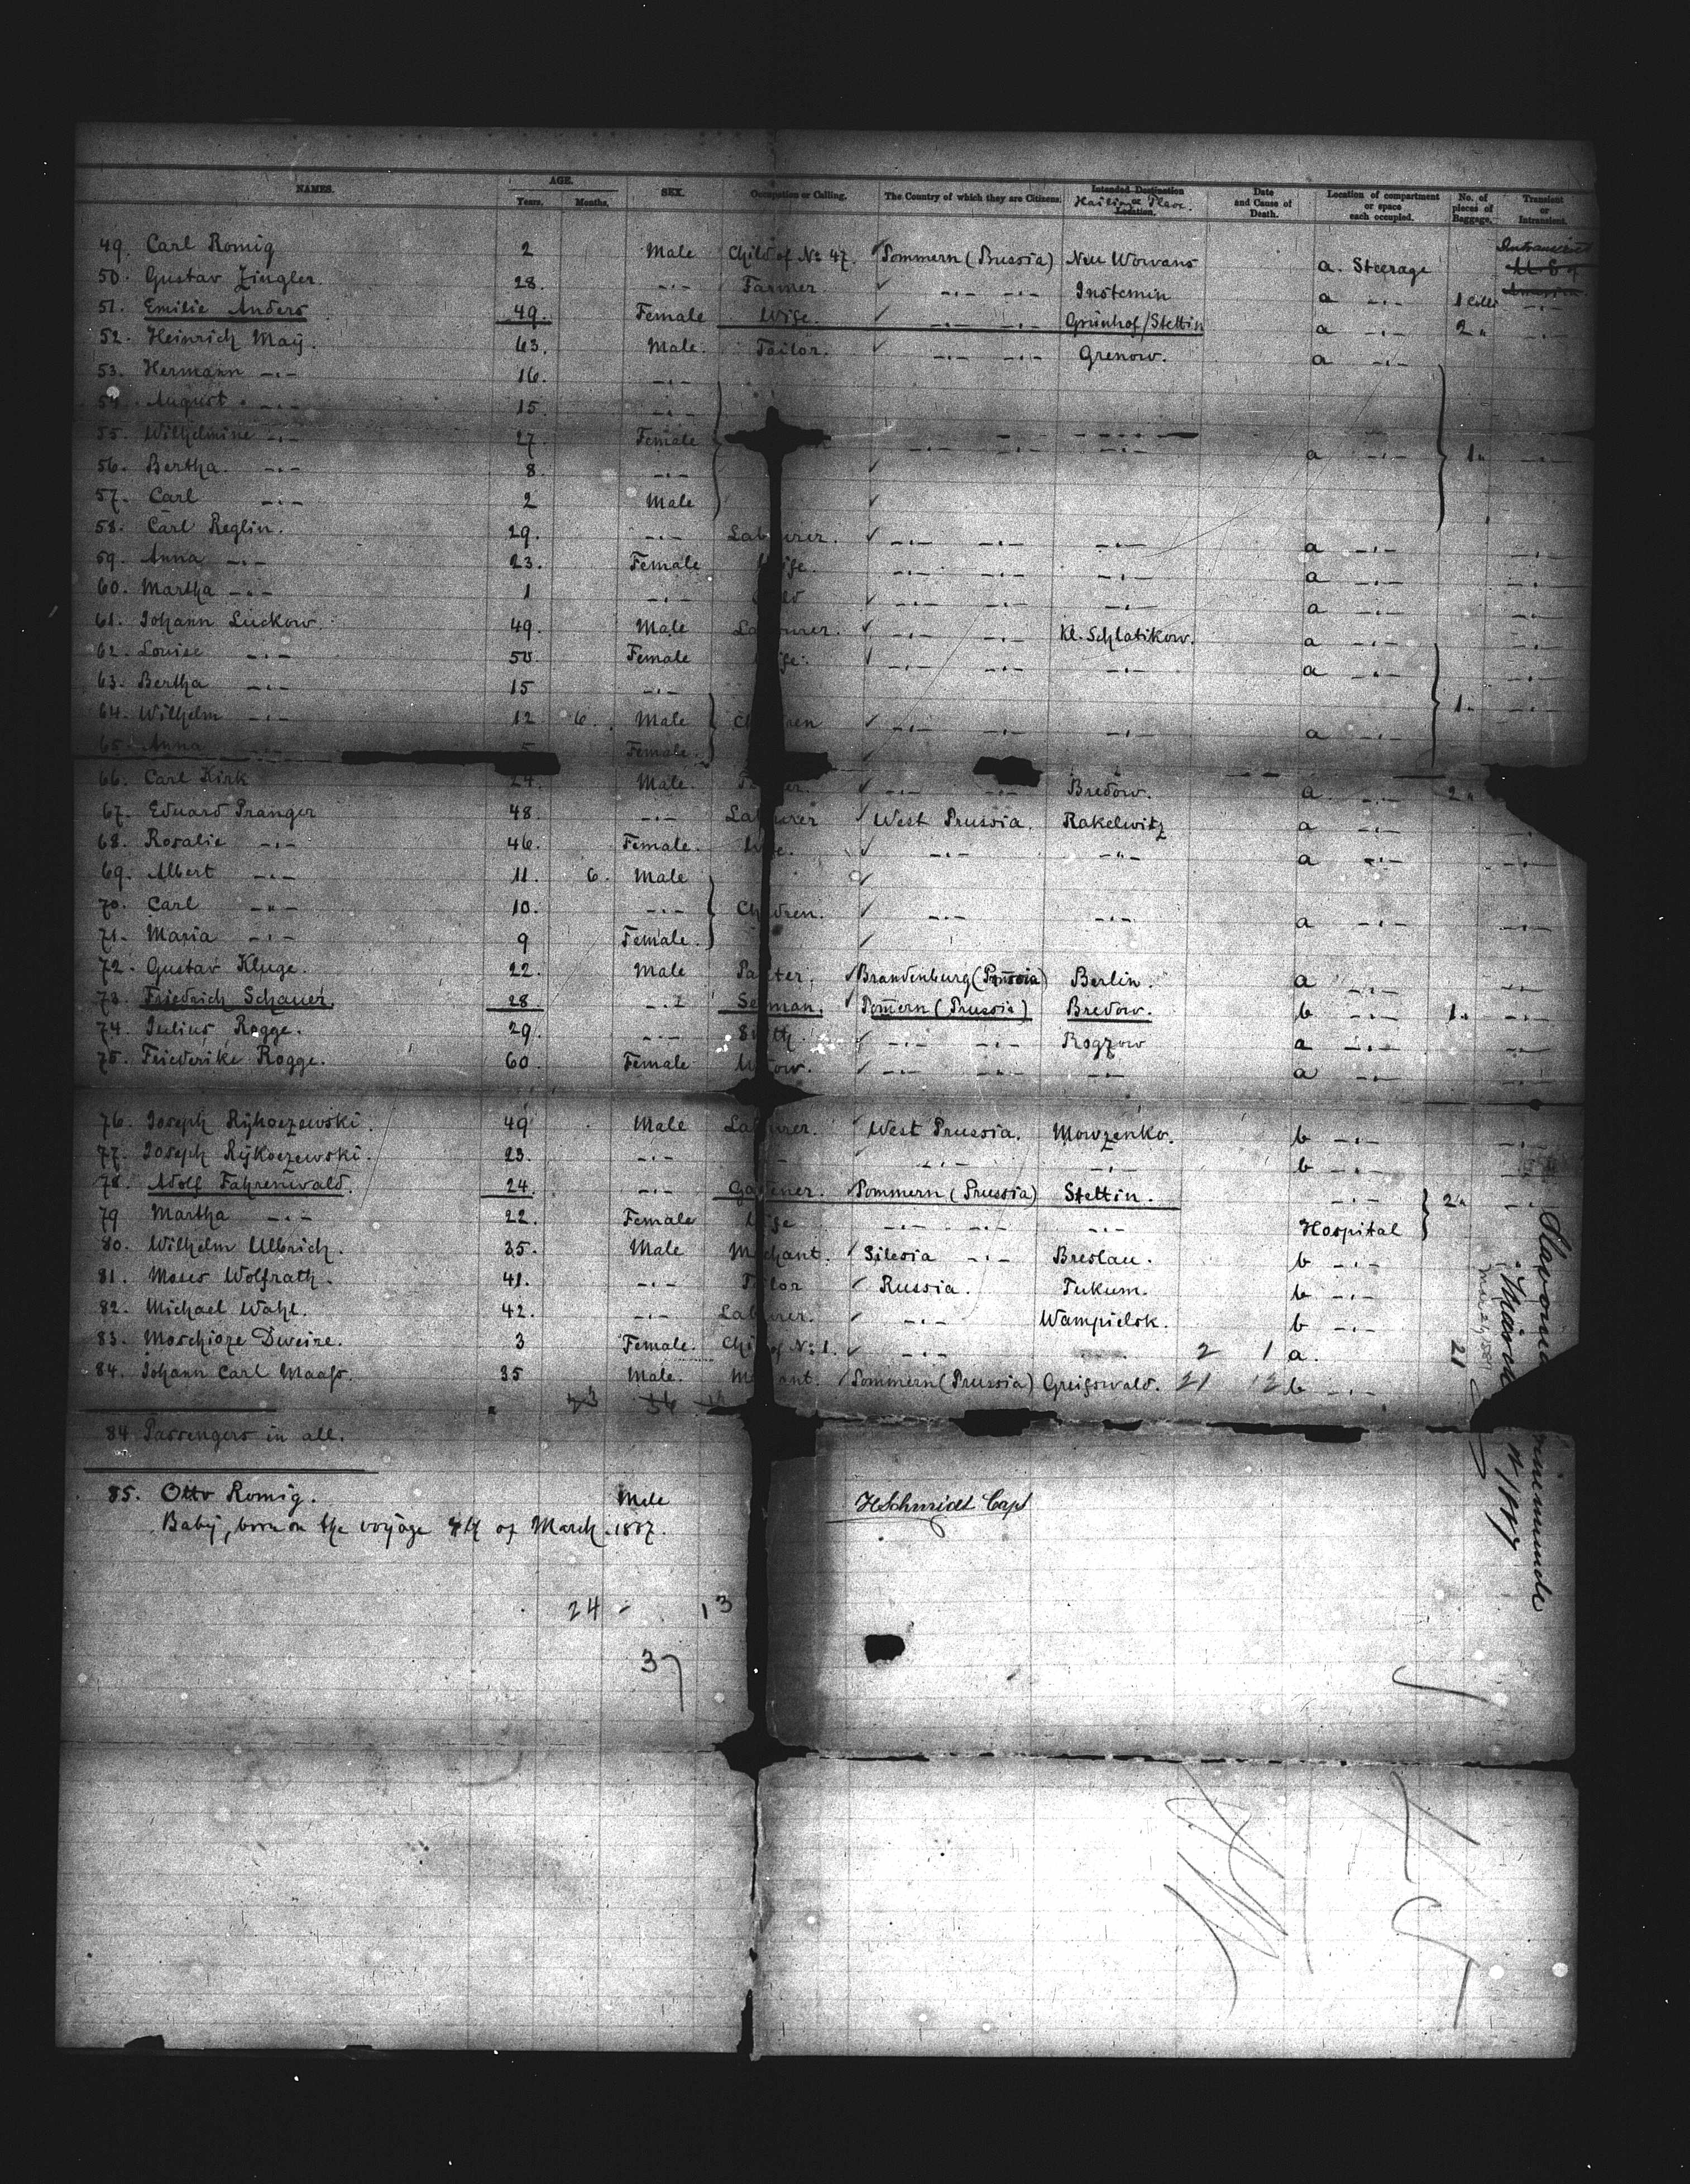 NAMES. AGE. Years. Months. SEX. Occupation or Calling. The Country of which they are Citizens. Intended Destination or Location. Hailing Place. Date and Cause of Death. Location of compartment or space each occupied. No. of pieces of Baggage. Transient or Intransient.
49. Carl Romig 2 Male Child of No 47. Pommern (Prussia) Neu Worvans a. Steerage Intransient
50. Gustav Zingler. 28. -"- Farmer. -"- -"- Instemin a -"- 1 Colli -"-
51. Emilie Anders 49. Female Wife. -"- -"- Grünhof/Stettin a -"- 2 " -"-
52. Heinrich Maÿ. 63. Male. Tailor. -"- -"- Grenow. a -"-
53. Hermann -"- 16. -"-
54. August -"- 15. -"-
55. Wilhelmine -"- 27. Female -"- -"- -"- a -"- 1 " -"-
56. Bertha. -"- 8. -"-
57. Carl -"- 2 Male
58. Carl Reglin. 29. -"- Labourer. -"- -"- -"- a -"- -"-
59. Anna -"- 23. Female Wife. -"- -"- -"- a -"- -"-
60. Martha -"- 1 -"- -"- -"- -"- a -"- -"-
61. Johann Luckow. 49. Male Labourer. -"- -"- Kl. Schlatikow. a -"- -"-
62. Louise -"- 50. Female Wife. -"- -"- -"- a -"- -"-
63. Bertha -"- 15 -"-
64. Wilhelm -"- 12 6. Male Children -"- -"- -"- a -"- 1 " -"-
65. Anna -"- 5 Female.
66. Carl Kirk 24. Male. -"- -"- Bredow. a -"- 2 "
67. Eduard Pranger 48. -"- Labourer West Prussia. Rakelwitz a -"- -"-
68. Rosalie -"- 46. Female. Wife. -"- -"- a -"- -"-
69. Albert -"- 11. 6. Male
70. Carl -"- 10. -"- Children. -"- -"- a -"- -"-
71. Maria -"- 9 Female.
72. Gustav Kluge. 22. Male Brandenburg (Prussia) Berlin. a -"- -"-
73. Friedrich Schauer. 28 -"- Seaman. Pom̄ern (Prussia) Bredow. b -"- 1 " -"-
74. Julius Rogge. 29. -"- Smith. -"- -"- Rogzow a -"- -"-
75. Friederike Rogge. 60. Female Widow. -"- -"- -"- a -"- -"-
76. Joseph Rÿkoezewski. 49 Male Labourer. West Prussia. Mowzenko. b -"- -"-
77. Joseph Rÿkoezewski. 23. -"- - -"- -"- b -"- -"-
78. Adolf Fahrenwald. 24. -"- Gardener. Pommern (Prussia) Stettin. -"- 2 " -"-
79 Martha -"- 22. Female Wife -"- -"- -"- Hospital
80. Wilhelm Ulbrich. 35. Male Merchant. Silesia -"- Breslau. b -"-
81. Moses Wolfrath. 41. -"- Tailor Russia. Tukum. b -"-
82. Michael Wahl. 42. -"- Labourer. -"- Wampielsk. b -"-
83. Moschioze Dweire. 3 Female. Child of No 1. -"- 2 1 a.
84. Johann Carl Maass. 35 Male. Merchant. Pommern (Prussia) Greifswald. 21 12 b -"-
73 36
84 Passengers in all.
85. Otto Romig. Male
Baby, born on the voyage 4th of March. 1887.
H Schmidt Capt
24 - 13
37
21